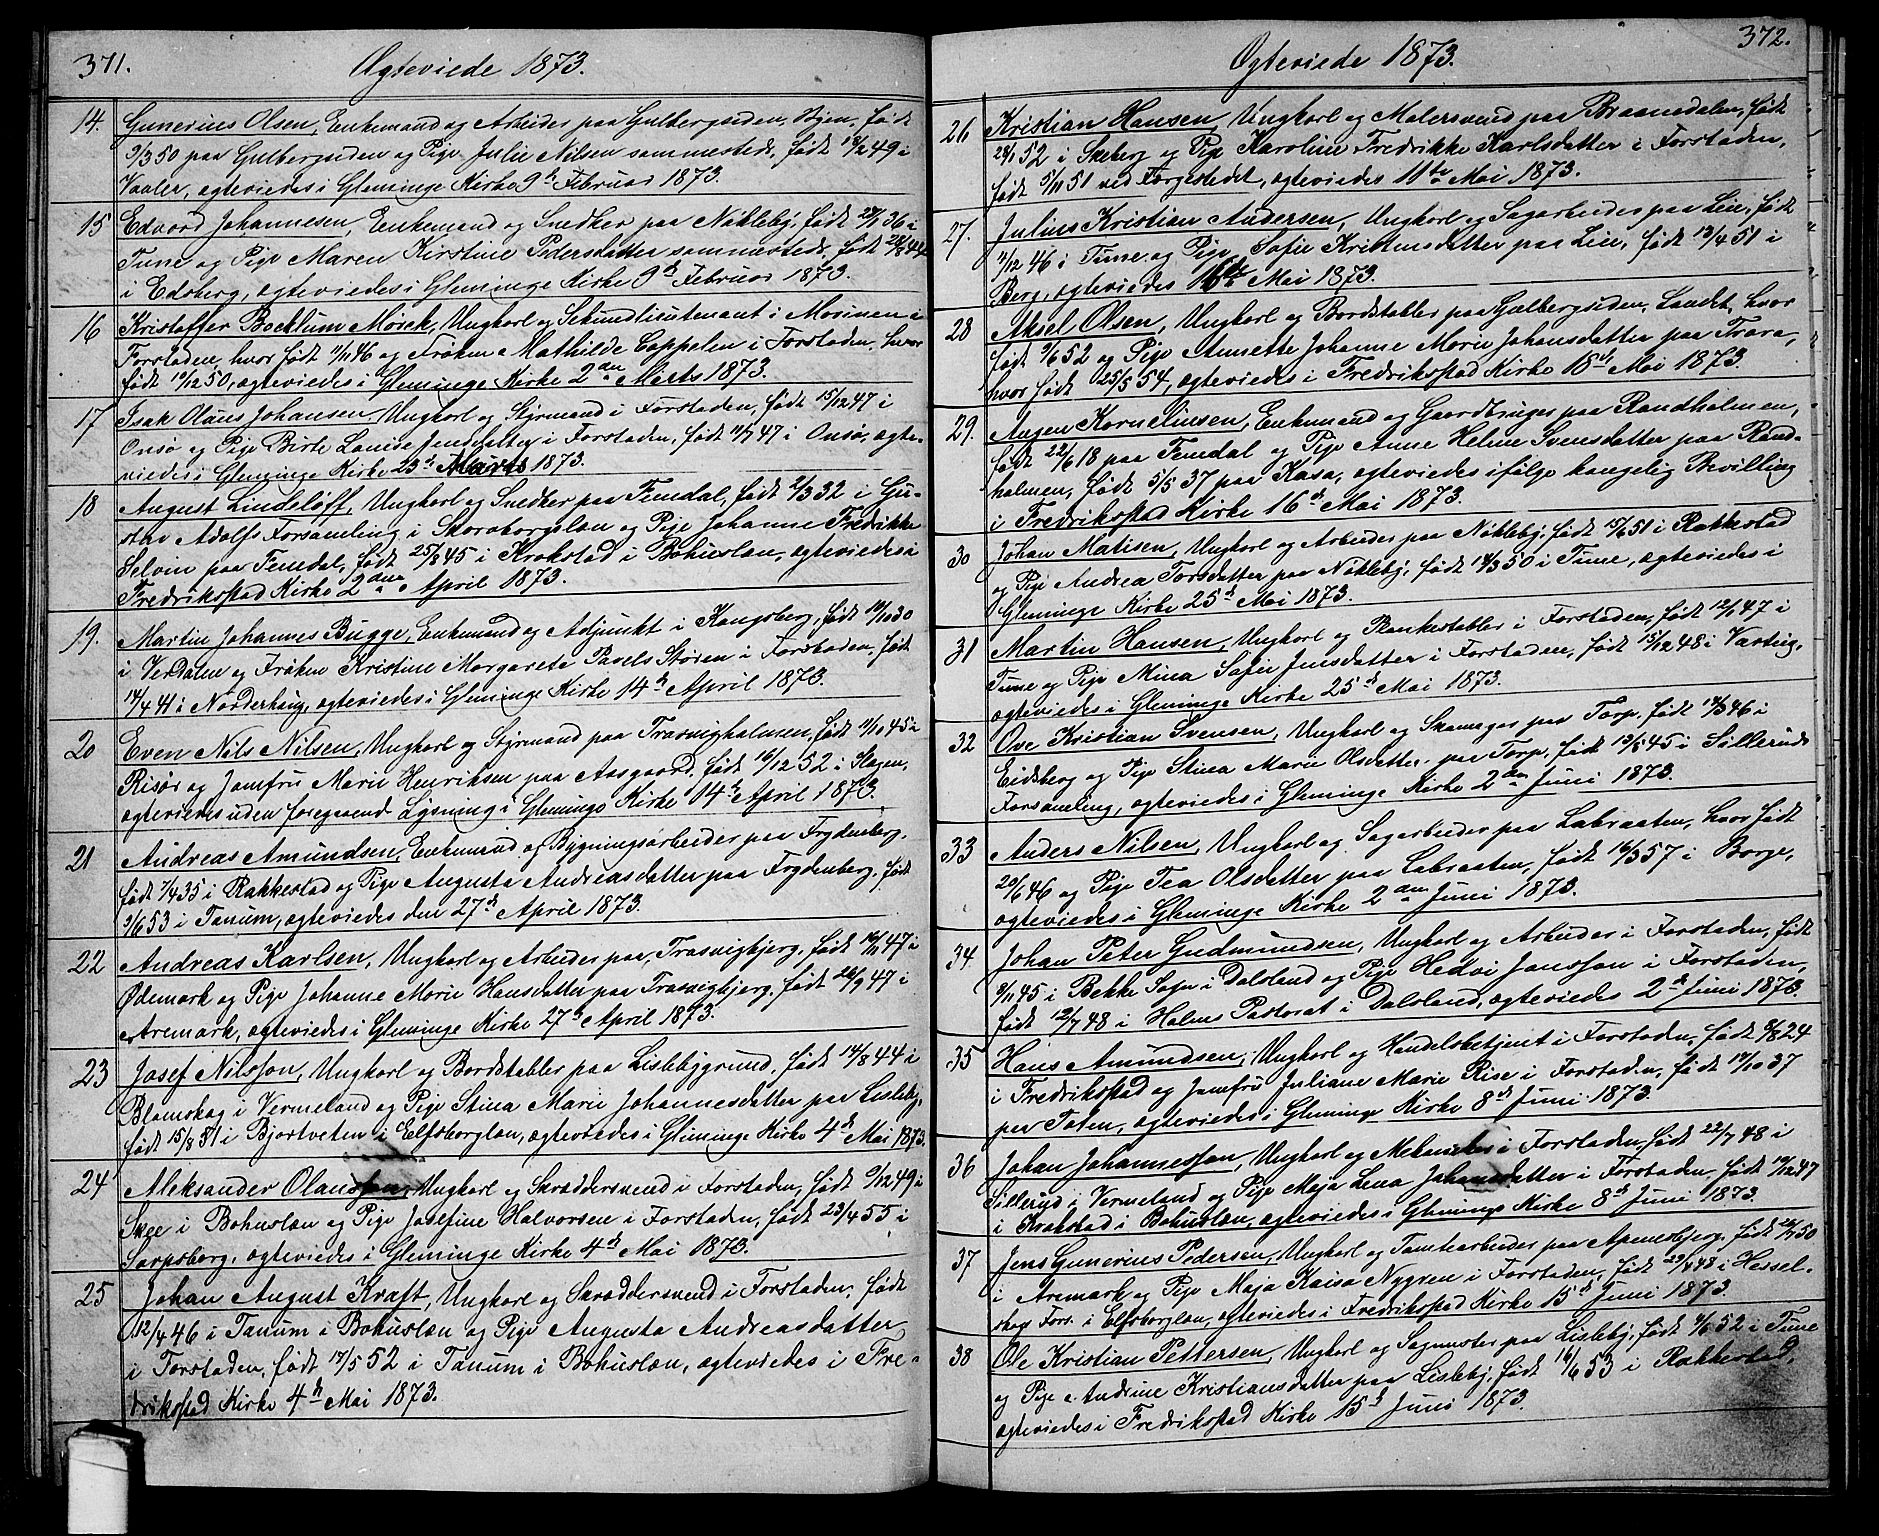 371.
Ægteviede 1873.
14. Gunerius Olsen, Enkemand og Arbeider paa Gulbergsiden, Byen, født
9/3 50 paa Gulbergsiden og Pige Julie Nilsen sammesteds, født 49 i
Vaaler, ægteviedes i Gleminge Kirke 9d Februar 1873.
15 Edvard Johannesen, Enkemand og Snedker paa Nøkleby, født 36 i
Tune og Pige Maren Kirstine Pedersdatter sammesteds, født 44
i Edsberg, ægteviedes i Gleminge Kirke 9d Februar 1873.
16 Kristoffer Bochlum Mørck, Ungkarl og Sekundlieutenant i Marinen i
Forstaden, hvor født 11/11 46 og Frøken Mathilde Cappelen i Forstaden, hvor
født 50, ægteviedes i Gleminge Kirke 2den Marts 1873.
17 Isak Olaus Johansen, Ungkarl og Styrmand i Forstaden, født 15/12 47 i
Onsø og Pige Birte Louise Jensdatter i Forstaden, født 47 i Onsø, ægte-
viedes i Gleminge Kirke 23d Marts 1873.
18 August Lindeløff, Ungkarl og Snedker paa Femdal, født 2/3 32 i Gu-
stav Adolfs Forsamling i Skaraborgslæn og Pige Johanne Fredrikke
Selvin paa Femdal, født 25/8 45 i Krokstad i Bohuslæn, ægteviedes i
Fredrikstad Kirke 2den April 1873.
19. Martin Johannes Bugge, Enkemand og Adjunkt i Kongsberg, født 10/10 30
i Verdalen og Frøken Kristine Margarete Pavels Støren i Forstaden, født
14/4 41 i Norderhaug, ægteviedes i Gleminge Kirke 14d April 1873.
20 Even Nils Nilsen, Ungkarl og Styrmand paa Trasvigholmen, født 11/10 45 i
Risør og Jomfru Marie Henriksen paa Aasgaard, født 16/12 52 i Slagen,
ægteviedes uden foregaaend Lysning i Gleminge Kirke 14d April 1873.
21 Andreas Amundsen, Enkemand og Bygningsarbeider paa Frydenberg,
født 7/4 35 i Rakkestad og Pige Augusta Andreasdatter paa Frydenberg, født
3/6 53 i Tanum, ægteviedes den 27d April 1873.
22 Andreas Karlsen, Ungkarl og Arbeider paa Trasvigbjerg, født 47 i
Ødemark og Pige Johanne Marie Hansdatter paa Trasvigbjerg, født 26/9 47 i
Aremark, ægteviedes i Gleminge Kirke 27d April 1873.
23 Josef Nilsson, Ungkarl og Bordstabler paa Lislebygrund, født 14/8 44 i
Blomskog i Vermeland og Pige Stina Marie Johannesdatter paa Lisleby,
født 15/8 31 i Bjortveten i Elfsborglæn, ægteviedes i Gleminge Kirke 4d Mai 1873.
24 Aleksander Olausson, Ungkarl og Skræddersvend i Forstaden, født 9/12 49 i
Skee i Bohuslæn og Pige Josefine Halvorsen i Forstaden, født 23/4 55 i
Sarpsborg, ægteviedes i Gleminge Kirke 4d Mai 1873.
25 Johan August Kraft, Ungkarl og Skræddersvend i Forstaden, født
12/4 46 i Tanum i Bohuslæn og Pige Augusta Andreasdatter
i Forstaden, født 17/5 52 i Tanum i Bohuslæn, ægteviedes i Fre-
drikstad Kirke 4d Mai 1873.
372.
Ægteviede 1873.
26 Kristian Hansen, Ungkarl og Malersvend paa Braanedalen, født
28/1 52 i Skeberg og Pige Karoline Fredrikke Karlsdatter i Forstaden,
født 5/11 51 ved Torgestedet, ægteviedes 11te Mai 1873.
27. Julius Kristian Andersen, Ungkarl og Sagarbeider paa Leie, født
11/12 46 i Tune og Pige Sofie Kristensdatter paa Leie, født 13/4 51 i
Berg, ægteviedes Mai 1873.
28 Aksel Olsen, Ungkarl og Bordstabler paa Gulbergsiden, Landet, hvor
født 9/6 52 og Pige Annette Johanne Marie Johansdatter paa Trara,
hvor født 25/5 54, ægteviedes i Fredrikstad Kirke 15d Mai 1873.
29. Angen Kornelinsen, Enkemand og Gaardbruger paa Randholmen,
født 22/6 18 paa Femdal og Pige Anne Helene Svensdatter paa Rand-
holmen, født 5/5 37 paa Kasa, ægteviedes ifølge kongelig Bevilling
i Fredrikstad Kirke 16d Mai 1873.
30 Johan Matisen, Ungkarl og Arbeider paa Nøkleby, født 51 i Rakkestad
og Pige Andrea Torsdatter paa Nøkleby, født 14/3 50 i Tune, ægteviedes i
Gleminge Kirke 25d Mai 1873.
31 Martin Hansen, Ungkarl og Plankestabler i Forstaden, født 12/1 47 i
Tune og Pige Mina Sofie Jensdatter i Forstaden, født 15/12 48 i Varteig,
ægteviedes i Gleminge Kirke 25d Mai 1873.
32 Ove Kristian Svensen, Ungkarl og Skomager paa Torp, født 14/3 46 i
Eidsberg og Pige Stina Marie Olsdatter paa Torp, født 12/6 45 i Sillerud
Forsamling, ægteviedes i Gleminge Kirke 2den Juni 1873.
33 Anders Nilsen, Ungkarl og Sagarbeider paa Labraaten, hvor født
20/6 46 og Pige Tea Olsdatter paa Labraaten, født 16/3 57 i Borge,
ægteviedes i Gleminge Kirke 2den Juni 1873.
34. Johan Peter Gudmundsen, Ungkarl og Arbeider i Forstaden, født
8/11 45 i Bekke Sogn i Dalsland og Pige Hedvi Jansson i Forstaden,
født 12/7 48 i Holms Pastorat i Dalsland, ægteviedes 2d Juni 1873.
35 Hans Amundsen, Ungkarl og Handelsbetjent i Forstaden, født 8/8 24
i Fredrikstad og Jomfru Juliane Marie Rise i Forstaden, født 17/10 37
paa Toten, ægteviedes i Gleminge Kirke 8d Juni 1873.
36 Johan Johannesson, Ungkarl og i Forstaden, født 22/7 48 i
Sillerud i Vermeland og Pige Maja Lena Johansdatter i Forstaden, født 10/12 47
i Krokstad i Bohuslæn, ægteviedes i Gleminge Kirke 8d Juni 1873.
37 Jens Gunerius Pedersen, Ungkarl og Tomtearbeider paa Apenesbjerg, født 50
i Aremark og Pige Maja Kaisa Nygren i Forstaden, født 29/4 48 i Hessel-
skogs Fors. i Elfsborglæn, ægteviedes i Fredrikstad Kirke 15d Juni 1873.
38 Ole Kristian Pettersen, Ungkarl og Sagmester paa Lisleby, født 4/6 52 i Tune
og Pige Andrine Kristiansdatter paa Lisleby, født 16/6 53 i Rakkestad,
ægteviedes i Fredrikstad Kirke 15d Juni 1873.